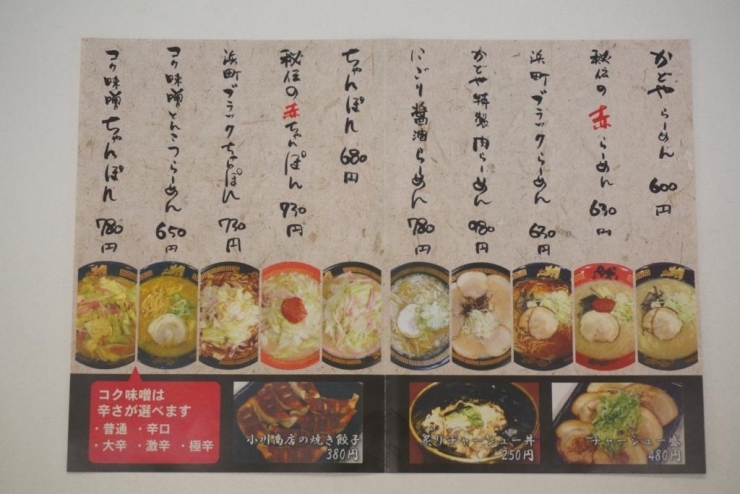 かどや らーめん 600円
秘伝の赤らーめん 630円
浜町ブラックらーめん 630円
かどや特製肉らーめん 980円
にごり醤油らーめん 780円
ちゃんぽん 680円
秘伝の赤ちゃんぽん 730円
浜町ブラックちゃんぽん 730円
コク味噌とんこつらーめん 650円
コク味噌ちゃんぽん 780円
コク味噌は
辛さが選べます
・普通 ・辛口
・大辛 ・激辛 ・極辛
小川商店の焼き餃子
380円
炙りチャーシュー丼
250円
チャーシュー盛
480円